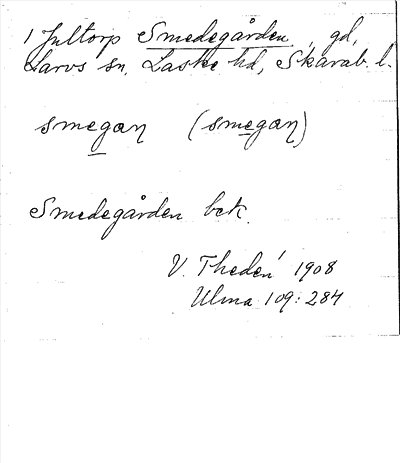 1 Jultorp Smedegården, gd,
Larvs sn, Laske hd, Skarab. l.
smegaɲ (smegaɲ)
Smedegården bek.
V. Thedén 1908
Ulma 109:284